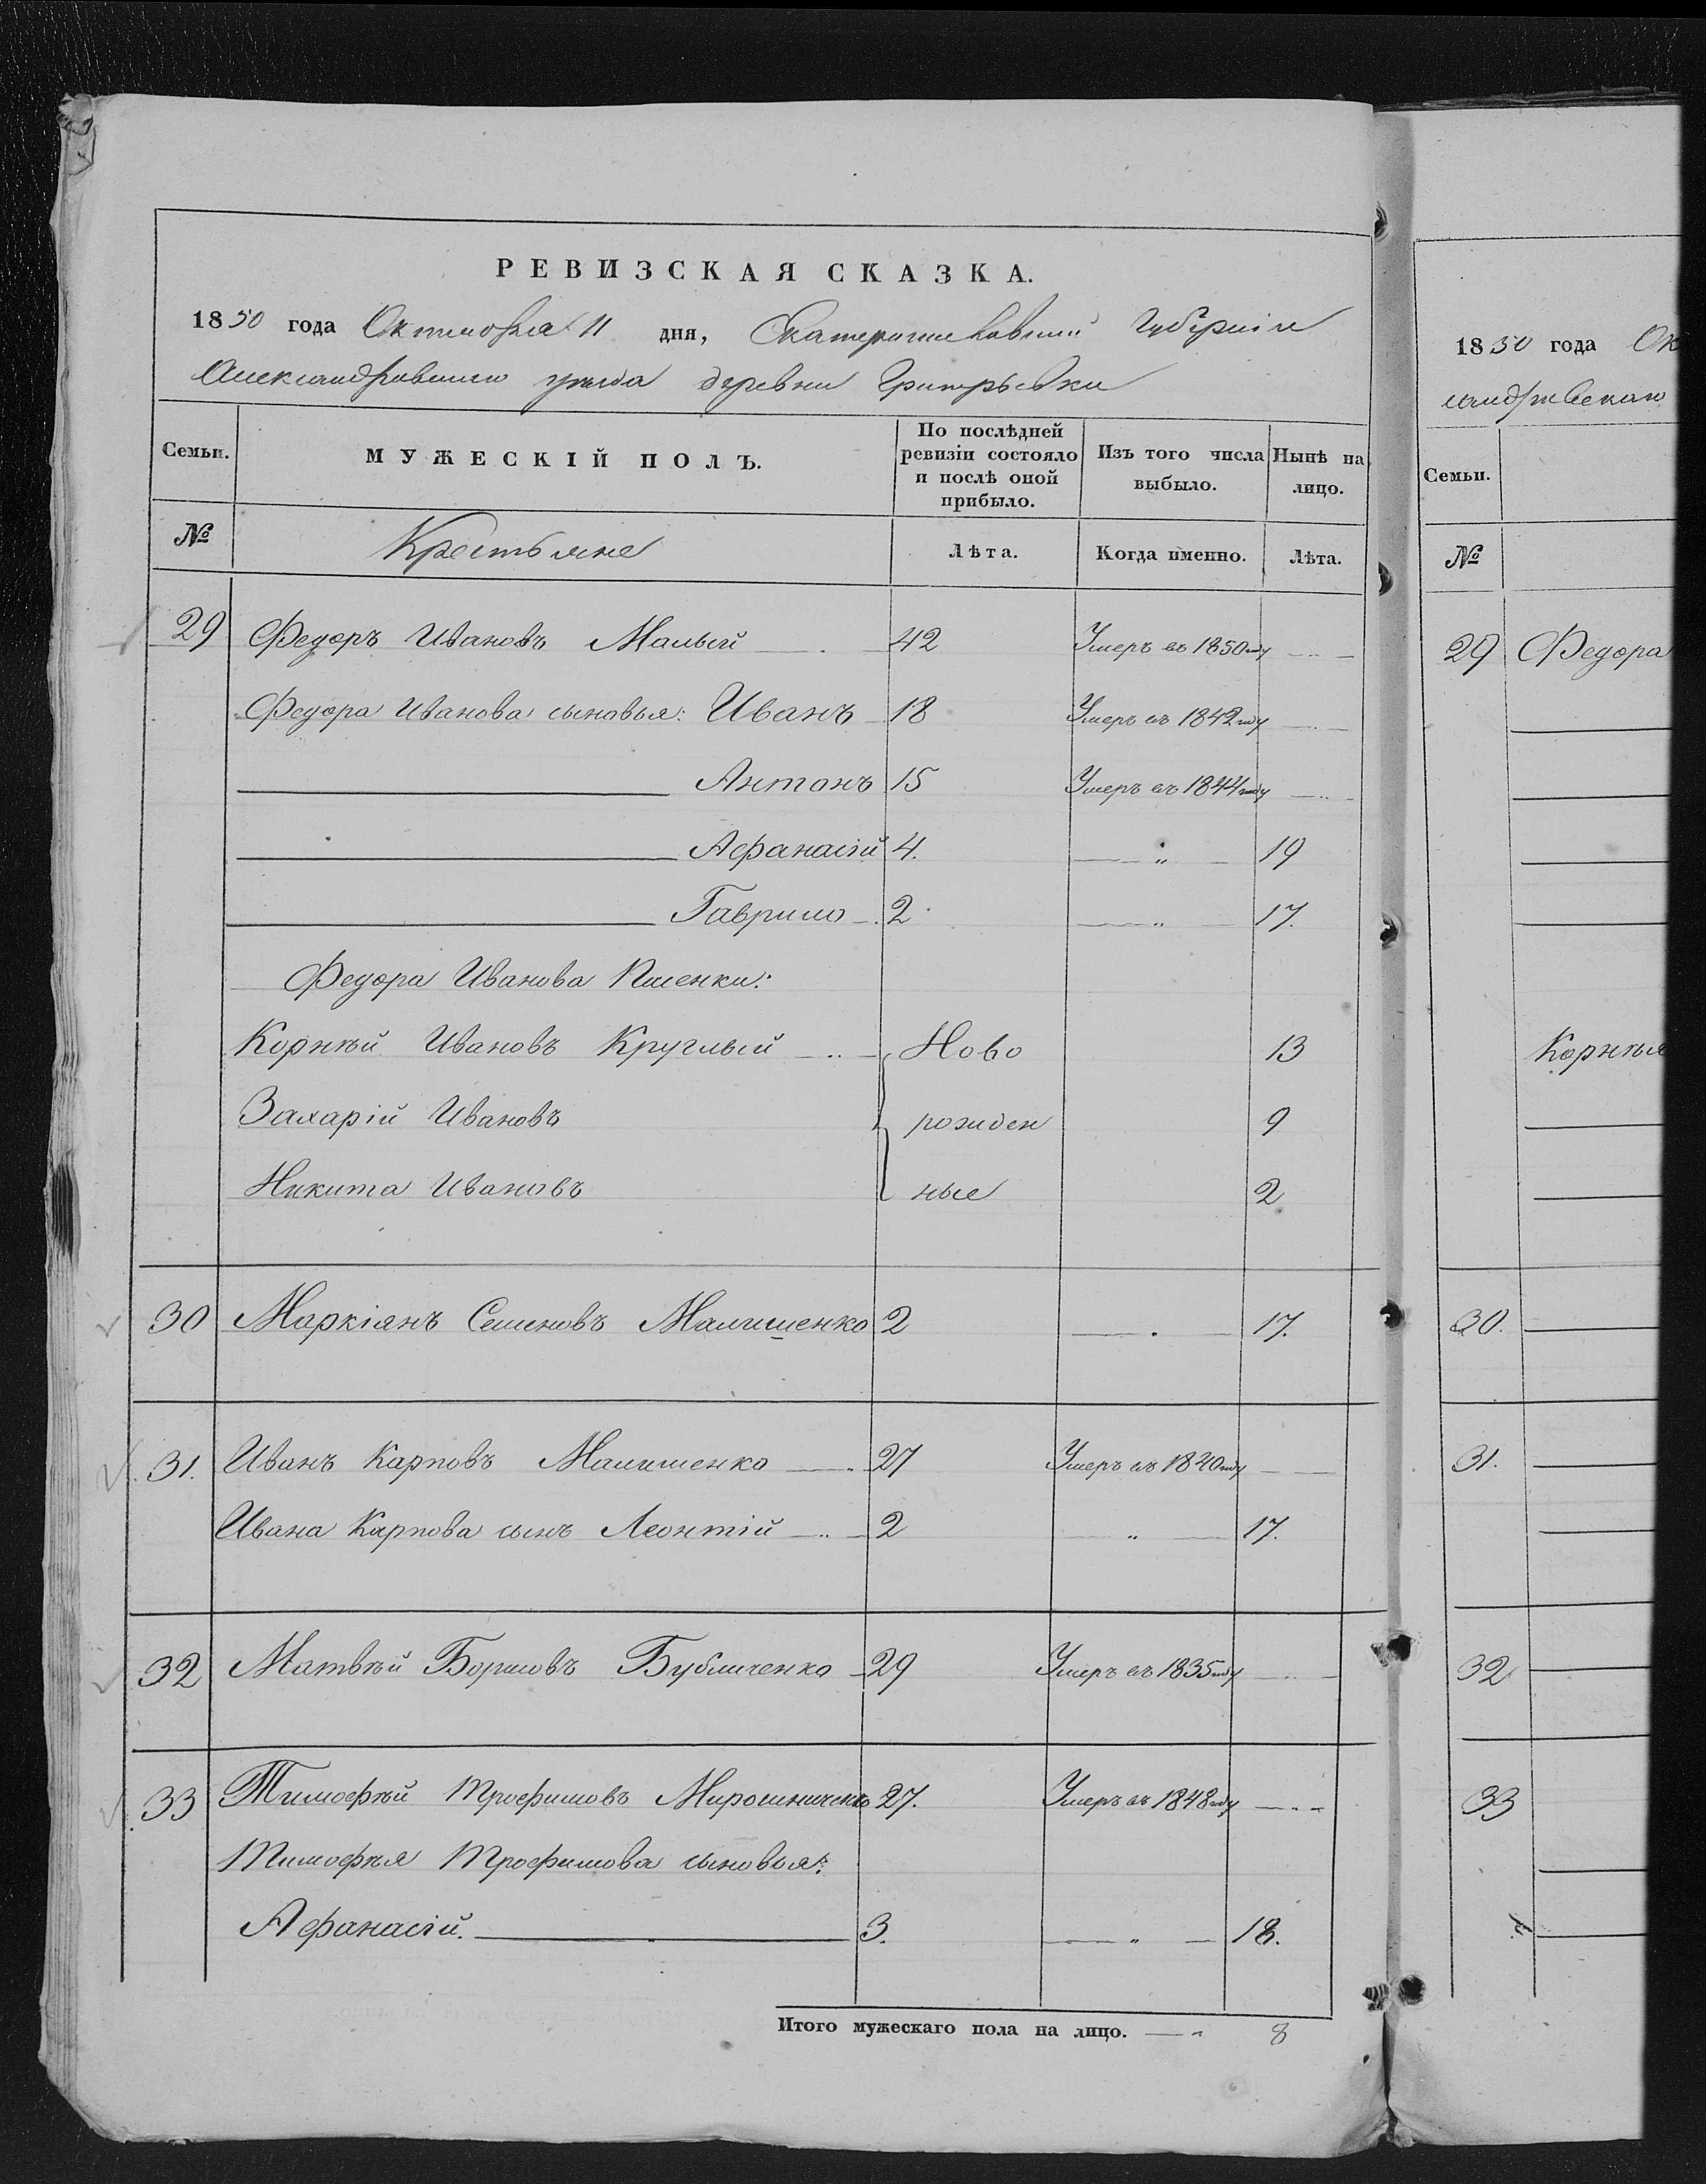 РЕВИЗСКАЯ СКАЗКА.
1850 года Октября 11 дня, Екатеринославской Губернии
Александровского уезда деревни
Семьи. МУЖЕСКІЙ ПОЛЪ. По послѣдней ревизіи состояло и послѣ оной прибыло. Изъ того числа выбыло. Нынѣ на лицо.
№ Крестьяне Лѣта. Когда именно. Лѣта.
29 Федоръ Ивановъ Малый 42 Умеръ въ 1850 году
Федора Иванова сыновья: Иванъ 18 Умеръ въ 1842 году
Антонъ 15 Умеръ въ 1844 году
Афанасій 4. " 19
Гаврило 2 " 17.
Федора Иванова
Корнѣй Ивановъ Круглый Ново 13
Захарій Ивановъ рожден 9
Никита Ивановъ ные 2
30 Маркіанъ Семеновъ Малишенко 2 17.
31. Иванъ Карповъ Малишенко 27 Умеръ въ 1840 году
Ивана Карпова сынъ Леонтій 2 " 17.
32 Матвѣй Борисовъ Бубличенко 29 Умеръ въ 1835 году
33 Тимофѣй Трофимовъ Мирошниченко 27. Умеръ въ 1848 году
Тимофѣя Трофимова сыновья:
Афанасій. 3. " 18.
Итого мужескаго пола на лицо. 8
1850 года Ок
Семьи.
№
29 Федора
Корнѣя
30.
31.
32
33